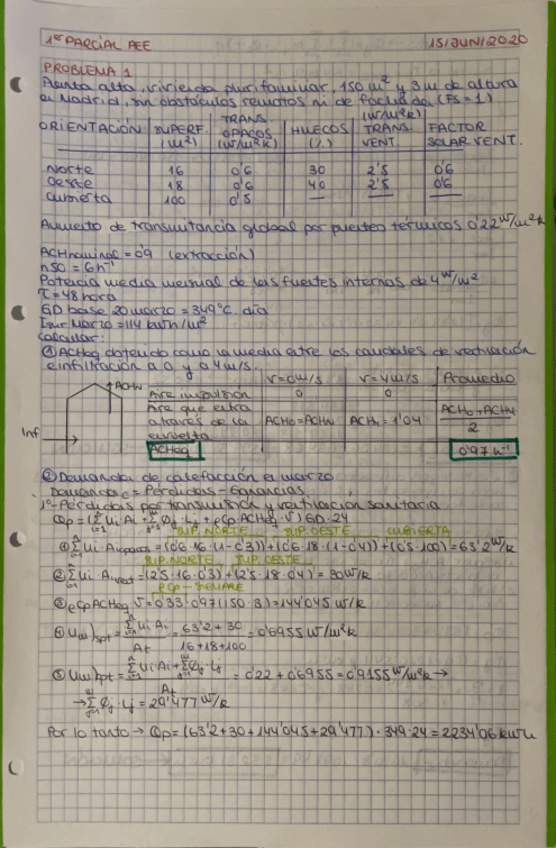 1er PARCIAL AEE
15/JUN/2020
PROBLEMA 1
Planta alta, vivienda plurifamiliar, 150 m² y 3m de altura
en Madrid, sin obstáculos remotos ni de fachada (FS=1)
ORIENTACIÓN SUPERF. (m²) TRANS. OPACOS (W/m²K) HUECOS (%) (W/m²K) TRANS. VENT. FACTOR SOLAR VENT.
Norte 16 0'6 30 2'5 0'6
Oeste 18 0'6 40 2'5 0'6
Cubierta 100 0'5 — — —
Aumento de transmitancia global por puentes térmicos 0'22 W/m²K
ACHnominal = 0'9 (extracción)
n50 = 6h⁻¹
Potencia media mensual de las fuentes internas de 4 W/m²
τ = 48 hora
GD base 20 marzo = 349°C. día
Isur Marzo = 114 kWh/m²
Calcular:
① ACHeq obtenido como la media entre los caudales de ventilación
e infiltración a 0 y a 4m/s.
V=0m/s V=4m/s Promedio
ACHN
Inf
Aire impulsión 0 0
Aire que entra a través de la envuelta ACH0=ACHN ACH4=1'04 ACH0+ACH4 / 2
ACHeq 0'97 h⁻¹
② Demanda de calefacción en marzo
Demanda c = Pérdidas - Ganancias
1º- Pérdidas por transmisión y ventilación sanitaria
Qp = (Σ Ui Ai + Σ φj Lj + ρCp ACHeq · V) GD · 24
SUP. NORTE SUP. OESTE CUBIERTA
① Σ Ui Ai opacos = (0'6·16·(1-0'3)) + (0'6·18·(1-0'4)) + (0'5·100) = 63'2 W/K
SUP. NORTE SUP. OESTE
② Σ Ui Avent = (2'5·16·0'3) + (2'5·18·0'4) = 30 W/K
ρCp - SIEMPRE
③ ρCp ACHeq V = 0'33·0'97(150·3) = 144'045 W/K
④ Um)spt = Σ Ui·Ai / At = 63'2+30 / 16+18+100 = 0'6955 W/m²K
⑤ Um)cpt = Σ Ui Ai + Σ φj·Lj / At = 0'22 + 0'6955 = 0'9155 W/m²K →
→ Σ φj · Lj = 29'477 W/K
Por lo tanto → Qp = (63'2+30+144'045+29'477)·349·24 = 2234'06 kWh